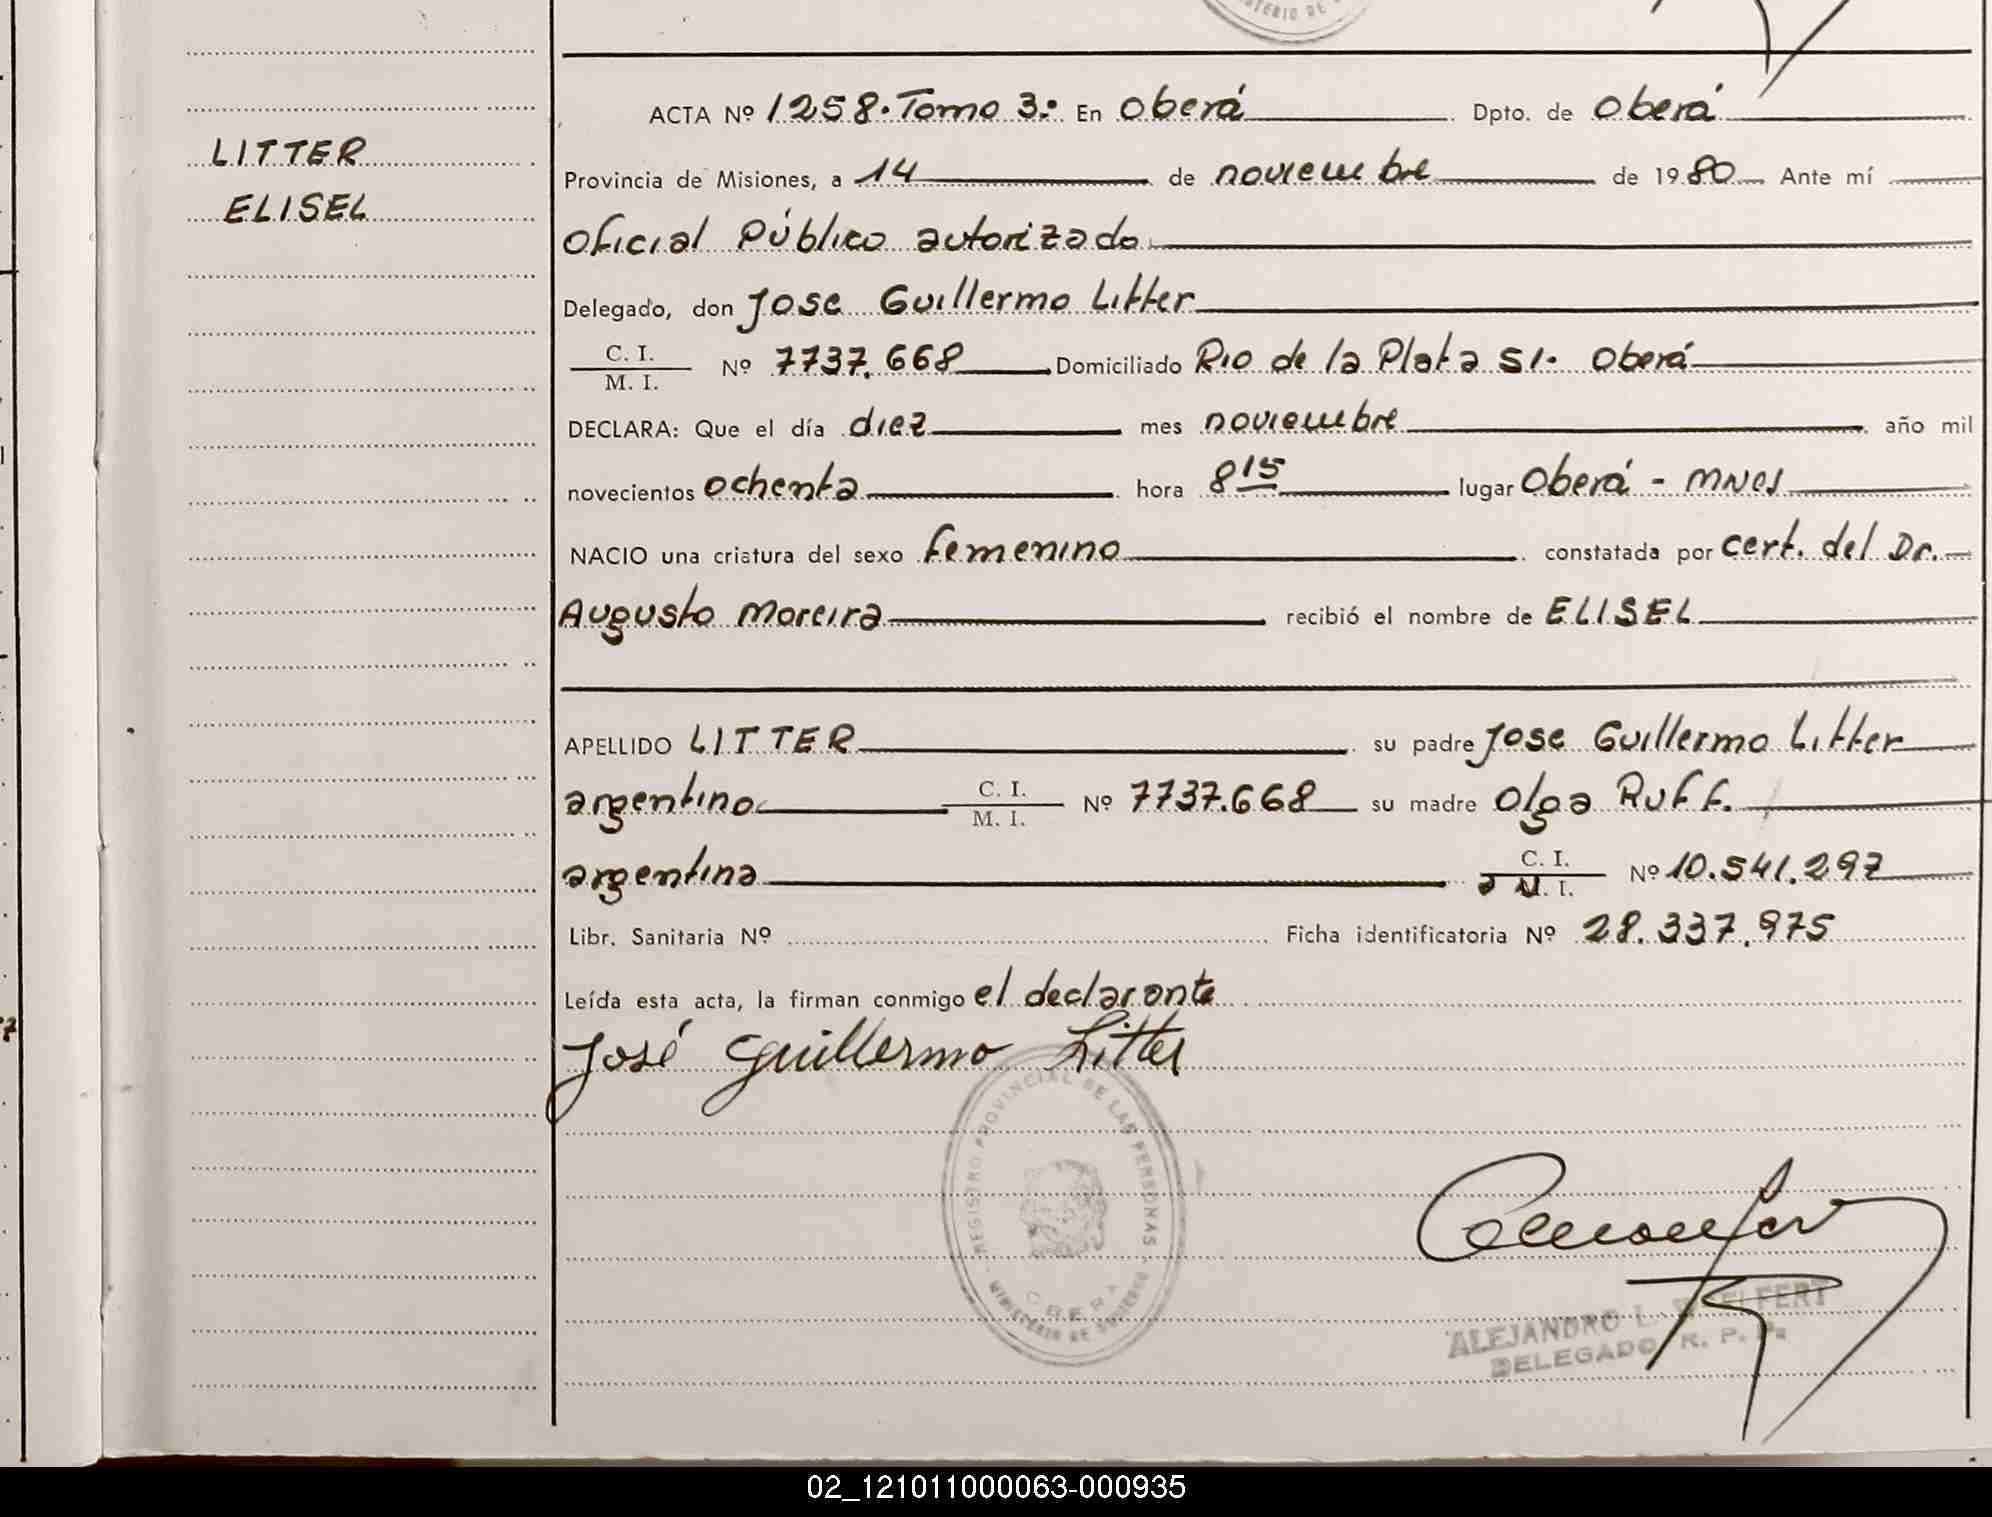 TERIO DE
LITTER
ELISEL
ACTA Nº 1258. Tomo 3: En Oberá Dpto. de Oberá
Provincia de Misiones, a 14 de noviembre de 1980 Ante mí
Oficial Público autorizado
Delegado, don Jose Guillermo Litter
C. I.
M. I. Nº 7737.668 Domiciliado Rio de la Plata s/. Oberá
DECLARA: Que el día diez mes noviembre año mil
novecientos ochenta hora 8 15 lugar Oberá - Mnes
NACIO una criatura del sexo femenino constatada por cert. del Dr.
Augusto Moreira recibió el nombre de ELISEL
APELLIDO LITTER su padre Jose Guillermo Litter
argentino C. I.
M. I. Nº 7737.668 su madre Olga Ruff.
argentina C. I.
M. I. Nº 10.541.297
Libr. Sanitaria Nº Ficha identificatoria Nº 28.337.975
Leída esta acta, la firman conmigo el declarante
José Guillermo Litter
REGISTRO PROVINCIAL DE LAS PERSONAS
OBERA
MINISTERIO DE GOBIERNO
ALEJANDRO L.
DELEGADO R. P. P.
02_121011000063-000935